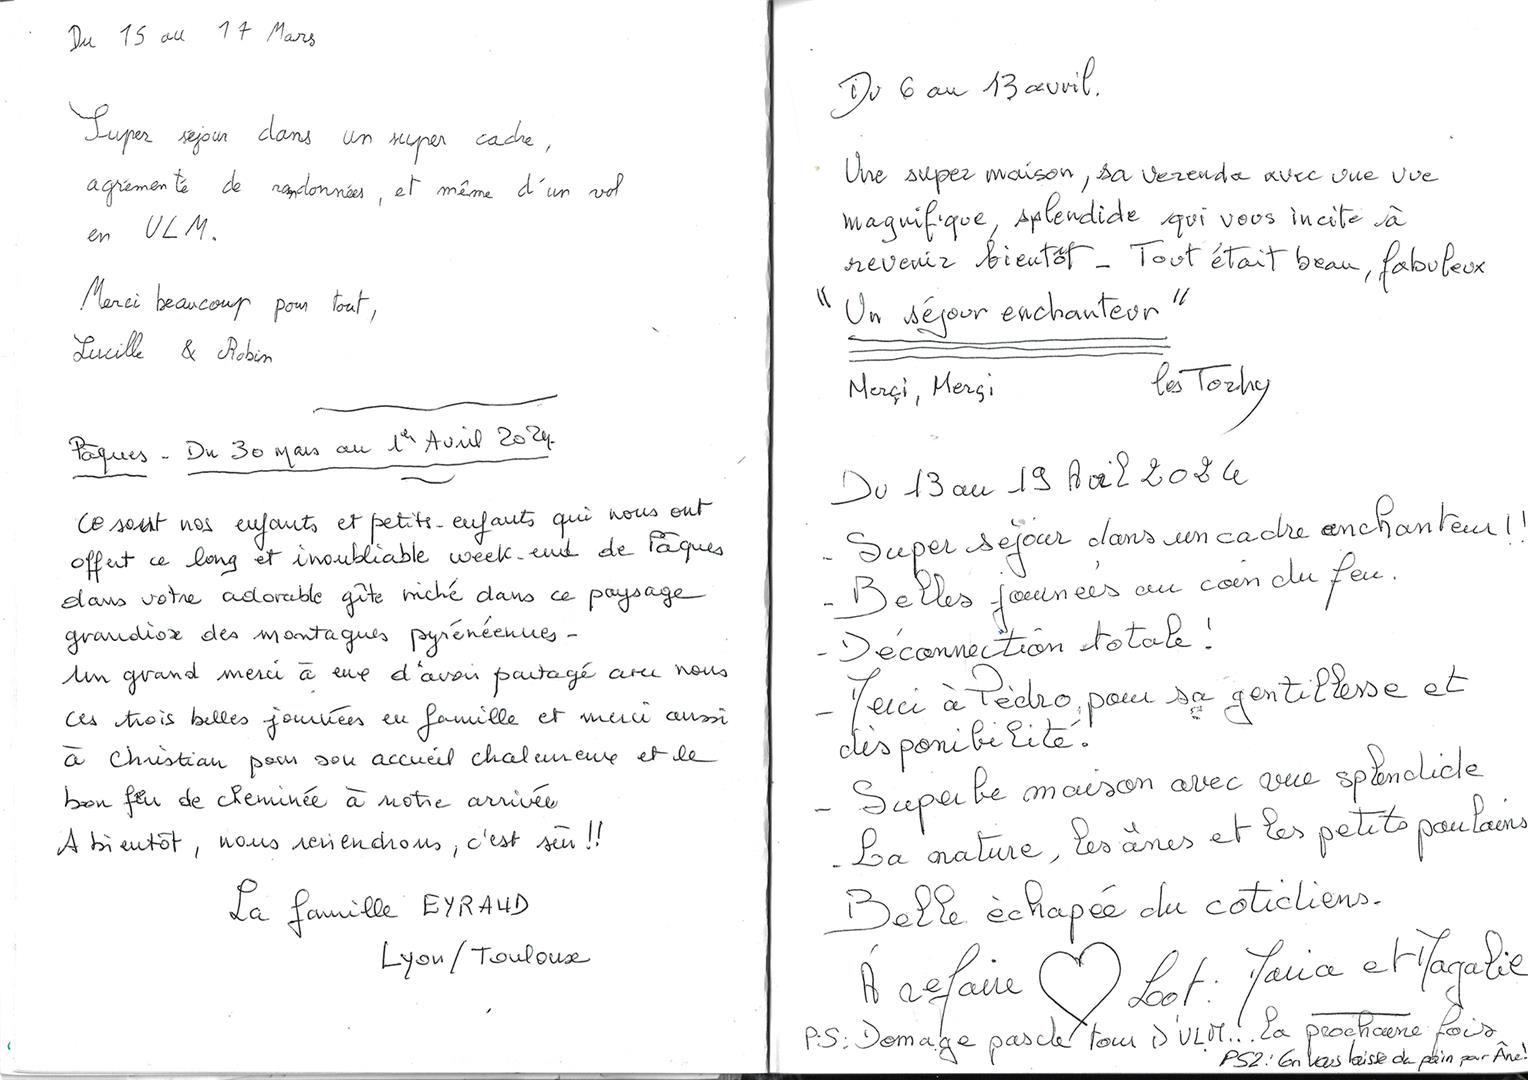 Du 15 au 17 Mars
Super séjour dans un super cadre,
agrémenté de randonnées, et même d'un vol
en ULM.
Merci beaucoup pour tout,
Lucille & Robin
Pâques - Du 30 mars au 1er Avril 2024.
Ce sont nos enfants et petits-enfants qui nous ont
offert ce long et inoubliable week-end de Pâques
dans votre adorable gîte niché dans ce paysage
grandiose des montagnes pyrénéennes -
Un grand merci à eux d'avoir partagé avec nous
ces trois belles journées en famille et merci aussi
à Christian pour son accueil chaleureux et le
bon feu de cheminée à notre arrivée
A bientôt, nous reviendrons, c'est sûr !!
La famille EYRAUD
Lyon/Toulouse
Du 6 au 13 avril.
Une super maison, sa verenda avec vue vue
magnifique, splendide qui vous incite à
revenir bientôt - Tout était beau, fabuleux
"Un séjour enchanteur"
Merçi, Merçi les Torhy
Du 13 au 19 Avril 2024
- Super séjour dans un cadre enchanteur !!
- Belles journées au coin du feu.
- Déconnection totale !
- Merci à Pédro, pour sa gentillesse et
disponibilité.
- Superbe maison avec vue splendide
- La nature, les ânes et les petits poulains
Belle échapée du cotidiens.
À refaire ♡ Loot. Maria et Magalie
P.S: Domage pas de tour d'ULM... La prochaene fois
PS2: On vous laisse du pain pour Âne!